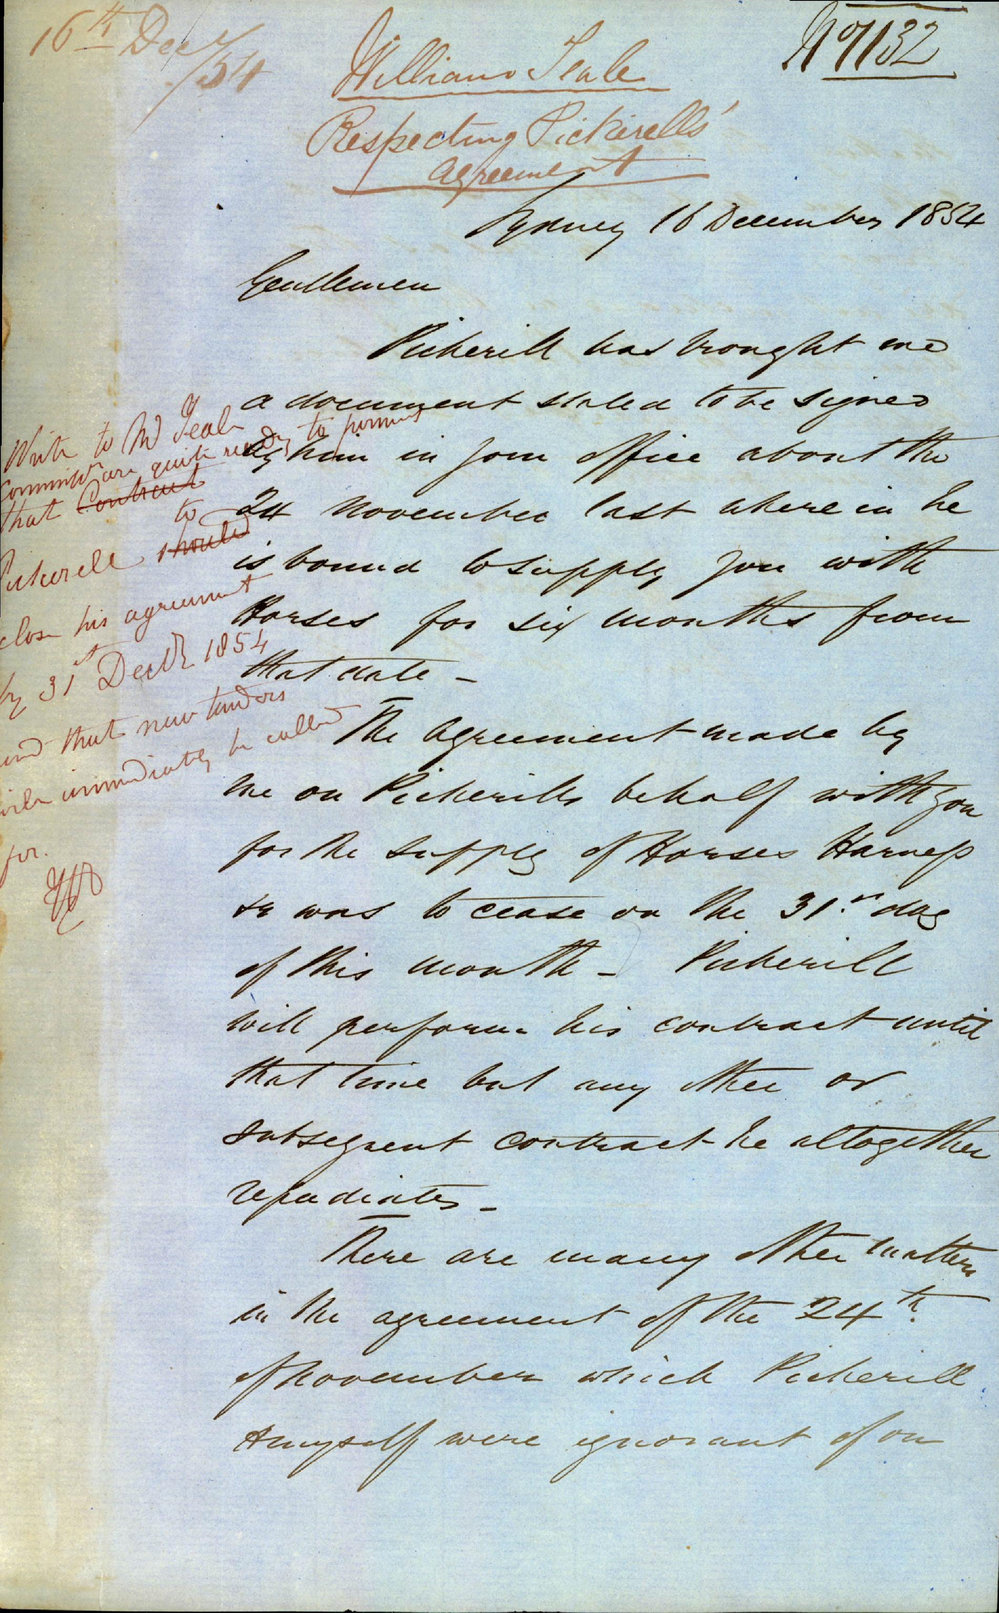 16th Decr
/54
No 1132
William Teale
Respecting Pickerells'
Agreement
Sydney 16 December 1854
Gentlemen
Pickerill has brought me
a document stated to be signed
by him in your office about the
24 November last where in he
is bound to supply you with
Horses for six months from
that date –
The Agreement made by
me on Pickerills behalf with you
for the supply of Horses Harness
&c was to cease on the 31st day
of this month – Pickerill
will perform his contract until
that time but any other or
subsequent contract he altogether
repudiates –
There are many other matters
in the agreement of the 24th
of November which Pickerill
& myself were ignorant of on
Write to Mr Teale
Commrs are quite ready to permit
that Contract
to
Pickerell should
close his agreement
by 31st Decbr 1854
and that new tenders
will immediately be called
for.